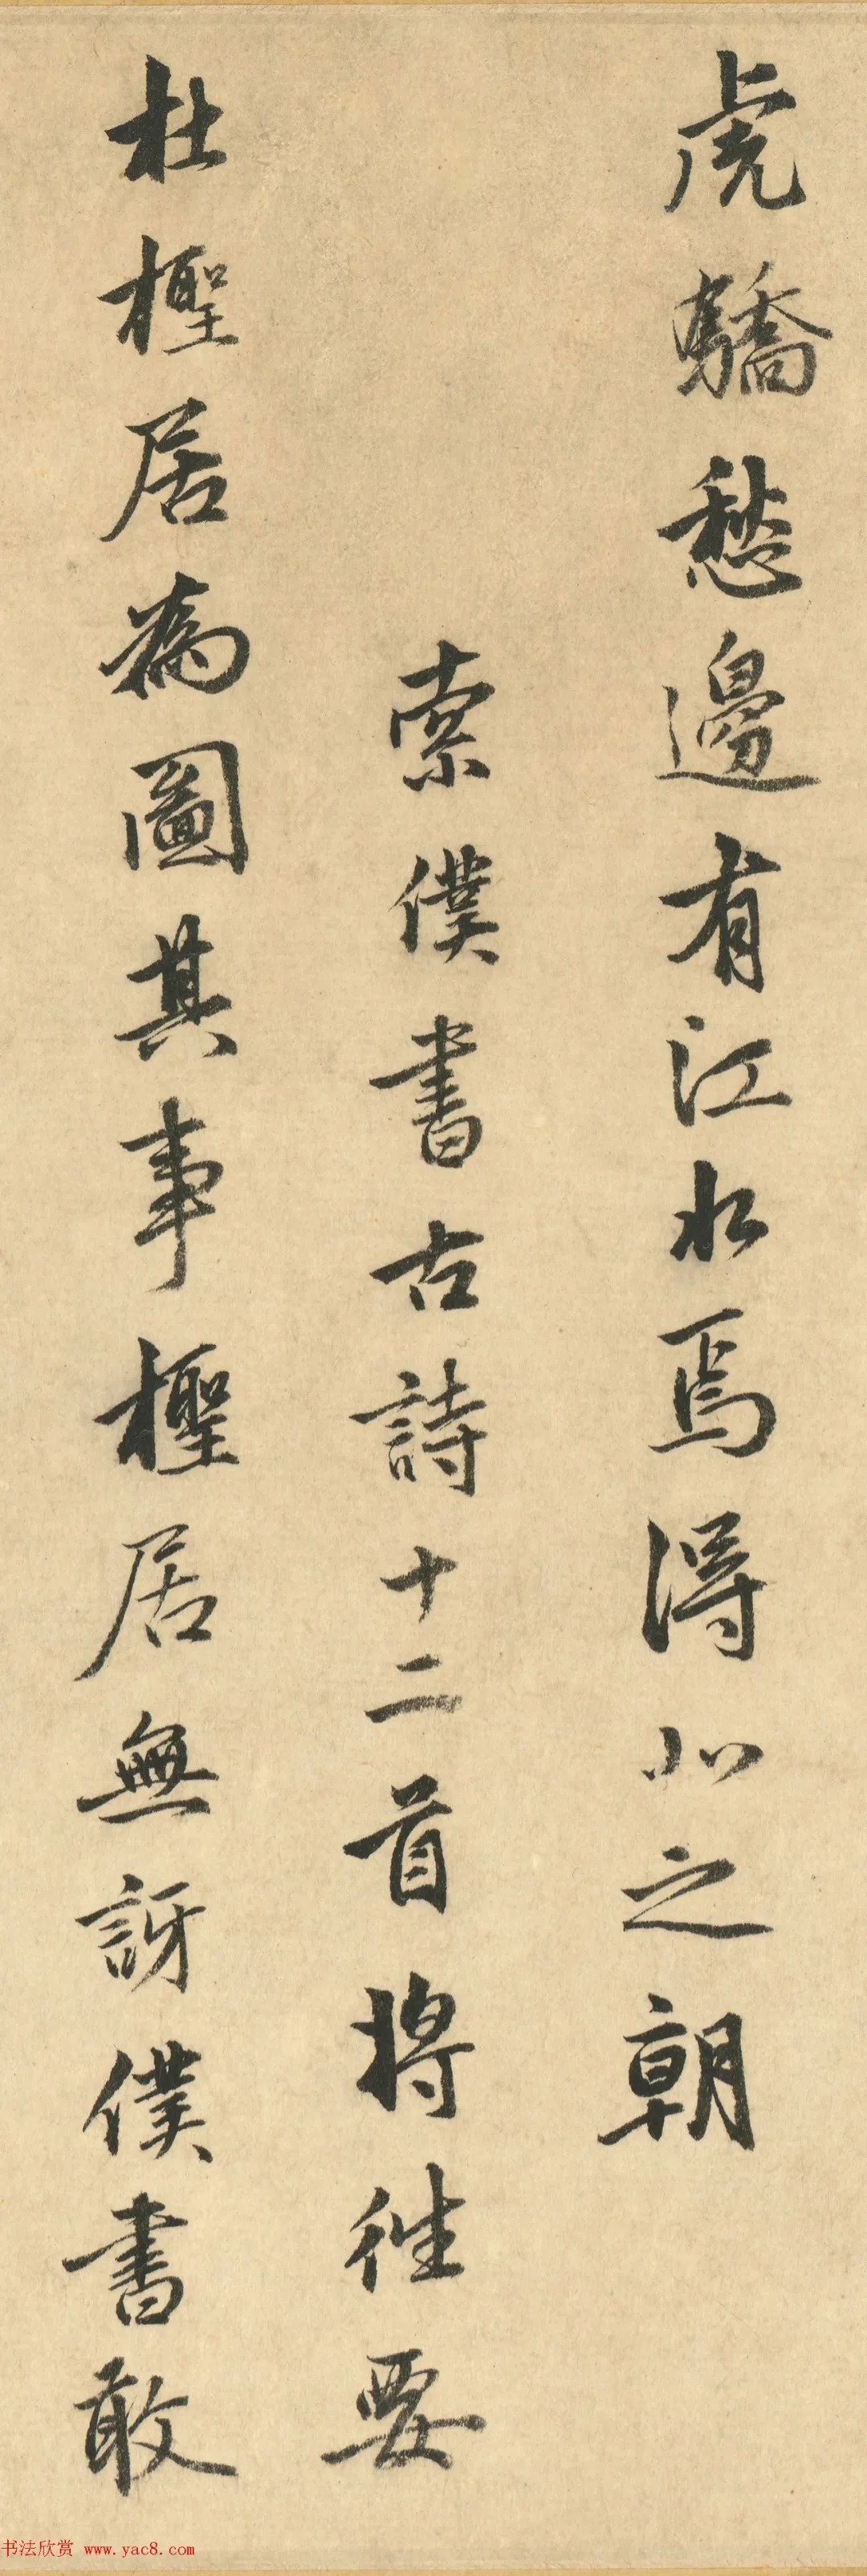 虎驕愁邊有江水焉得北之朝
索僕書古詩十二首將往要
杜檉居為圖其事檉居無訝僕書敢
书法欣赏 www.yac8.com